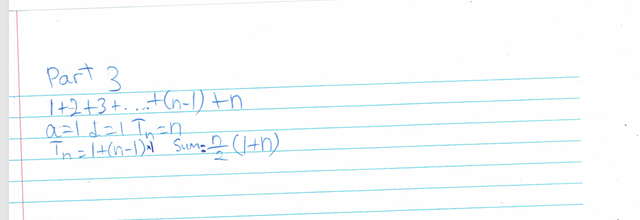 Part 3
1+2+3+...+(n-1)+n
a=1 d=1 Tn=n
Tn=1+(n-1)×1 Sum=n/2(1+n)